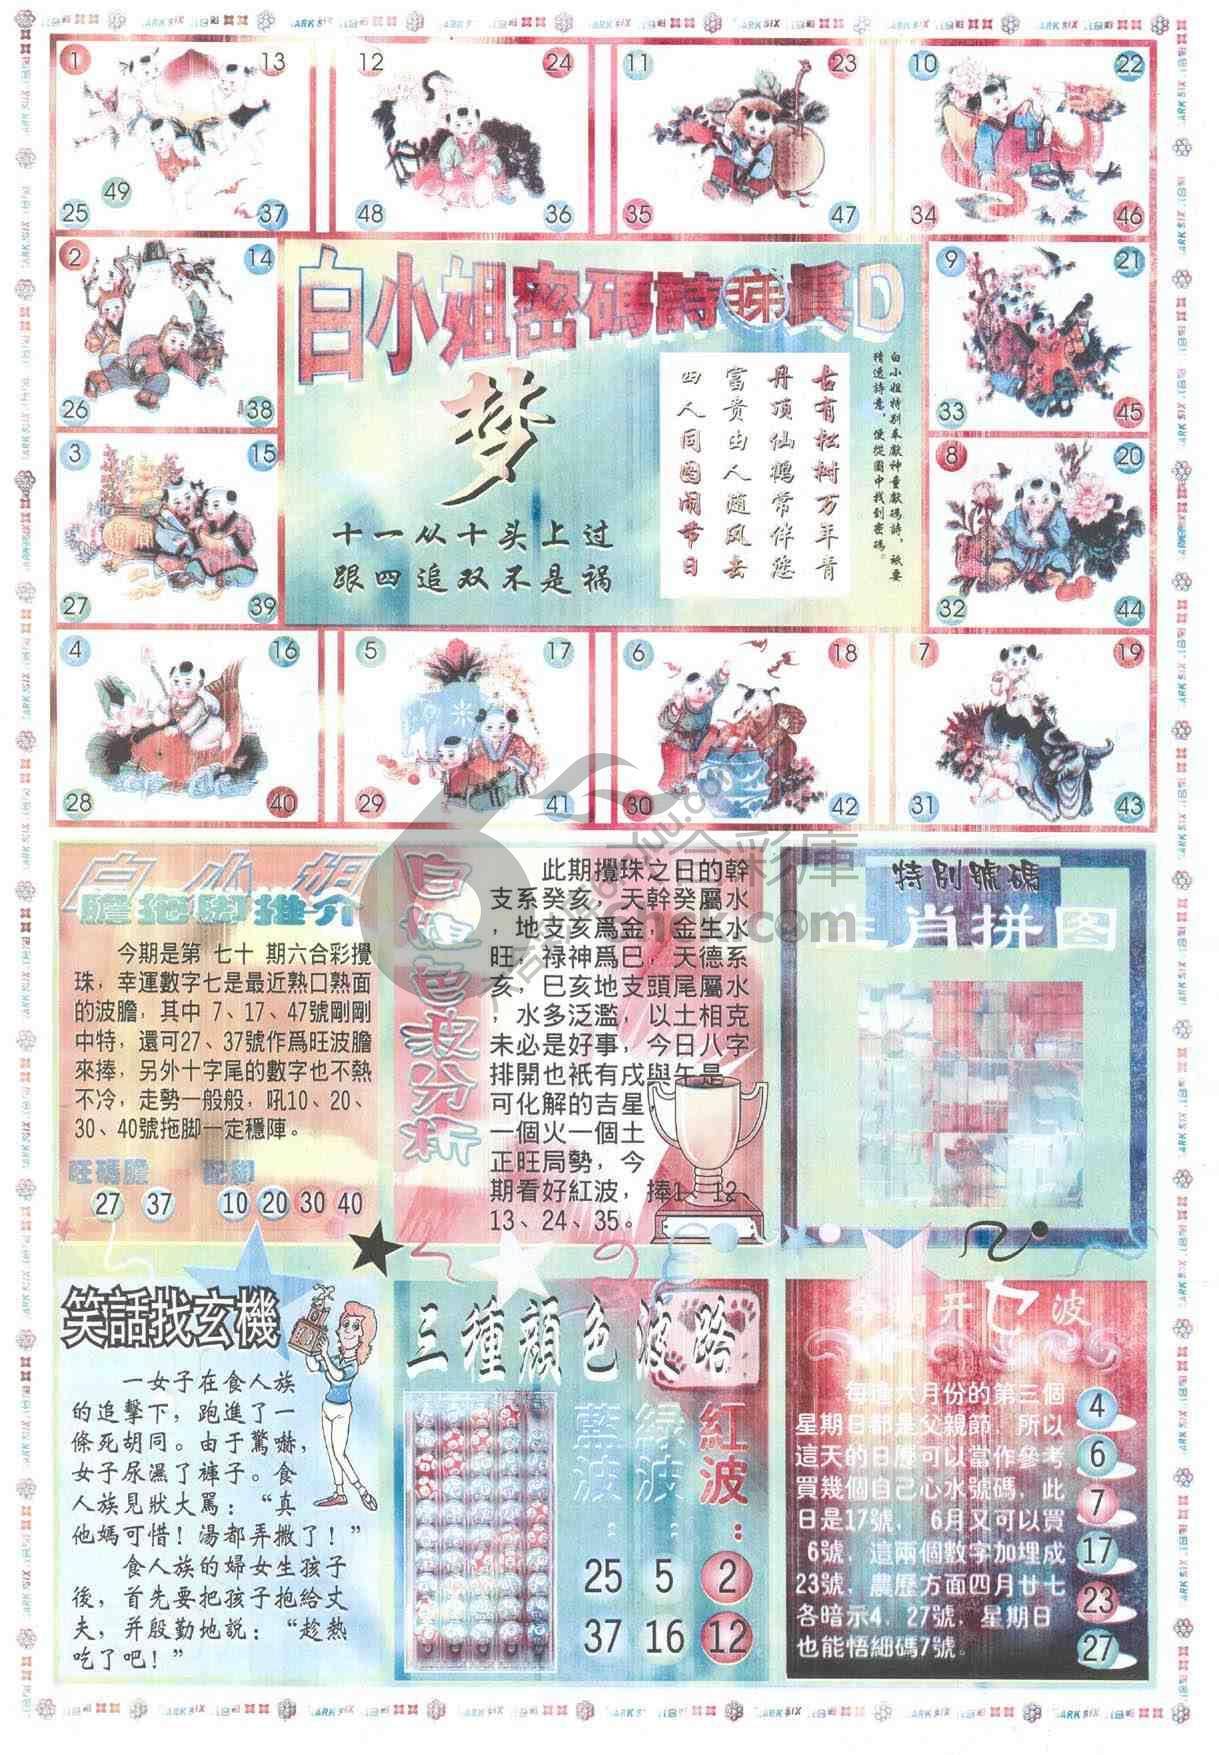 1 13
25 49 37
12 24
48 36
11 23
35 47
10 22
34 46
2 14
26 38
9 21
33 45
3 15
27 39
8 20
32 44
4 16
28 40
5 17
29 41
6 18
30 42
7 19
31 43
白小姐密碼詩
真D
梦
十一从十头上过
跟四追双不是祸
白小姐特别奉獻神童獻碼詩，祇要
精透詩意，便從圖中找到密碼。
古有松树万年青
丹顶仙鹤常伴您
富贵由人随风去
四人同图闹节日
白小姐
膽拖脚推介
今期是第 七十 期六合彩攪
珠，幸運數字七是最近熟口熟面
的波膽，其中 7、17、47號剛剛
中特，還可27、37號作爲旺波膽
來捧，另外十字尾的數字也不熱
不冷，走勢一般般，吼10、20、
30、40號拖脚一定穩陣。
旺碼膽 配脚
27 37 10 20 30 40
白姐七波分析
此期攪珠之日的幹
支系癸亥，天幹癸屬水
，地支亥爲金，金生水
旺，禄神爲巳，天德系
亥，巳亥地支頭尾屬水
，水多泛濫，以土相克
未必是好事，今日八字
排開也衹有戌與午是
可化解的吉星
一個火一個土
正旺局勢，今
期看好紅波，捧1、12
13、24、35。
特別號碼
生肖拼图
笑話找玄機
一女子在食人族
的追擊下，跑進了一
條死胡同。由于驚嚇，
女子尿濕了褲子。食
人族見狀大罵：“真
他媽可惜！湯都弄撒了！”
食人族的婦女生孩子
後，首先要把孩子抱給丈
夫，并殷勤地説：“趁熱
吃了吧！”
三種顏色波路
藍波： 綠波： 紅波：
25 5 2
37 16 12
今期开七波
每逢六月份的第三個
星期日都是父親節，所以
這天的日歷可以當作參考
買幾個自己心水號碼，此
日是17號， 6月又可以買
6號，這兩個數字加埋成
23號，農歷方面四月廿七
各暗示4，27號，星期日
也能悟細碼7號。
4
6
7
17
23
27
六合彩庫